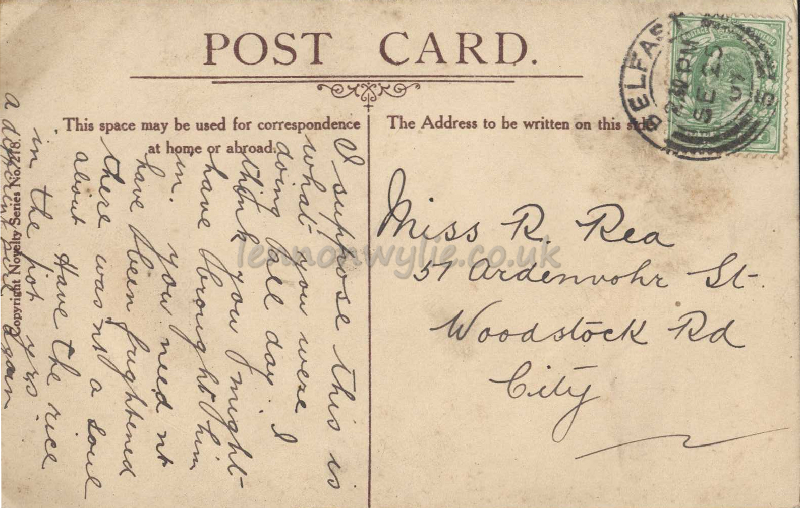 POST CARD.
This space may be used for correspondence
at home or abroad.
The Address to be written on this side
BELFAST
Miss R. Rea
51 Ardenvohr St.
Woodstock Rd
City
I suppose this is
what you were
doing all day. I
think you might
have brought him
in. you need nt
have been frightened
there was nt a soul
about Have the rice
in the pot yrs
a different pair again
Copyright Novelty Series No. 218.
lennonwylie.co.uk